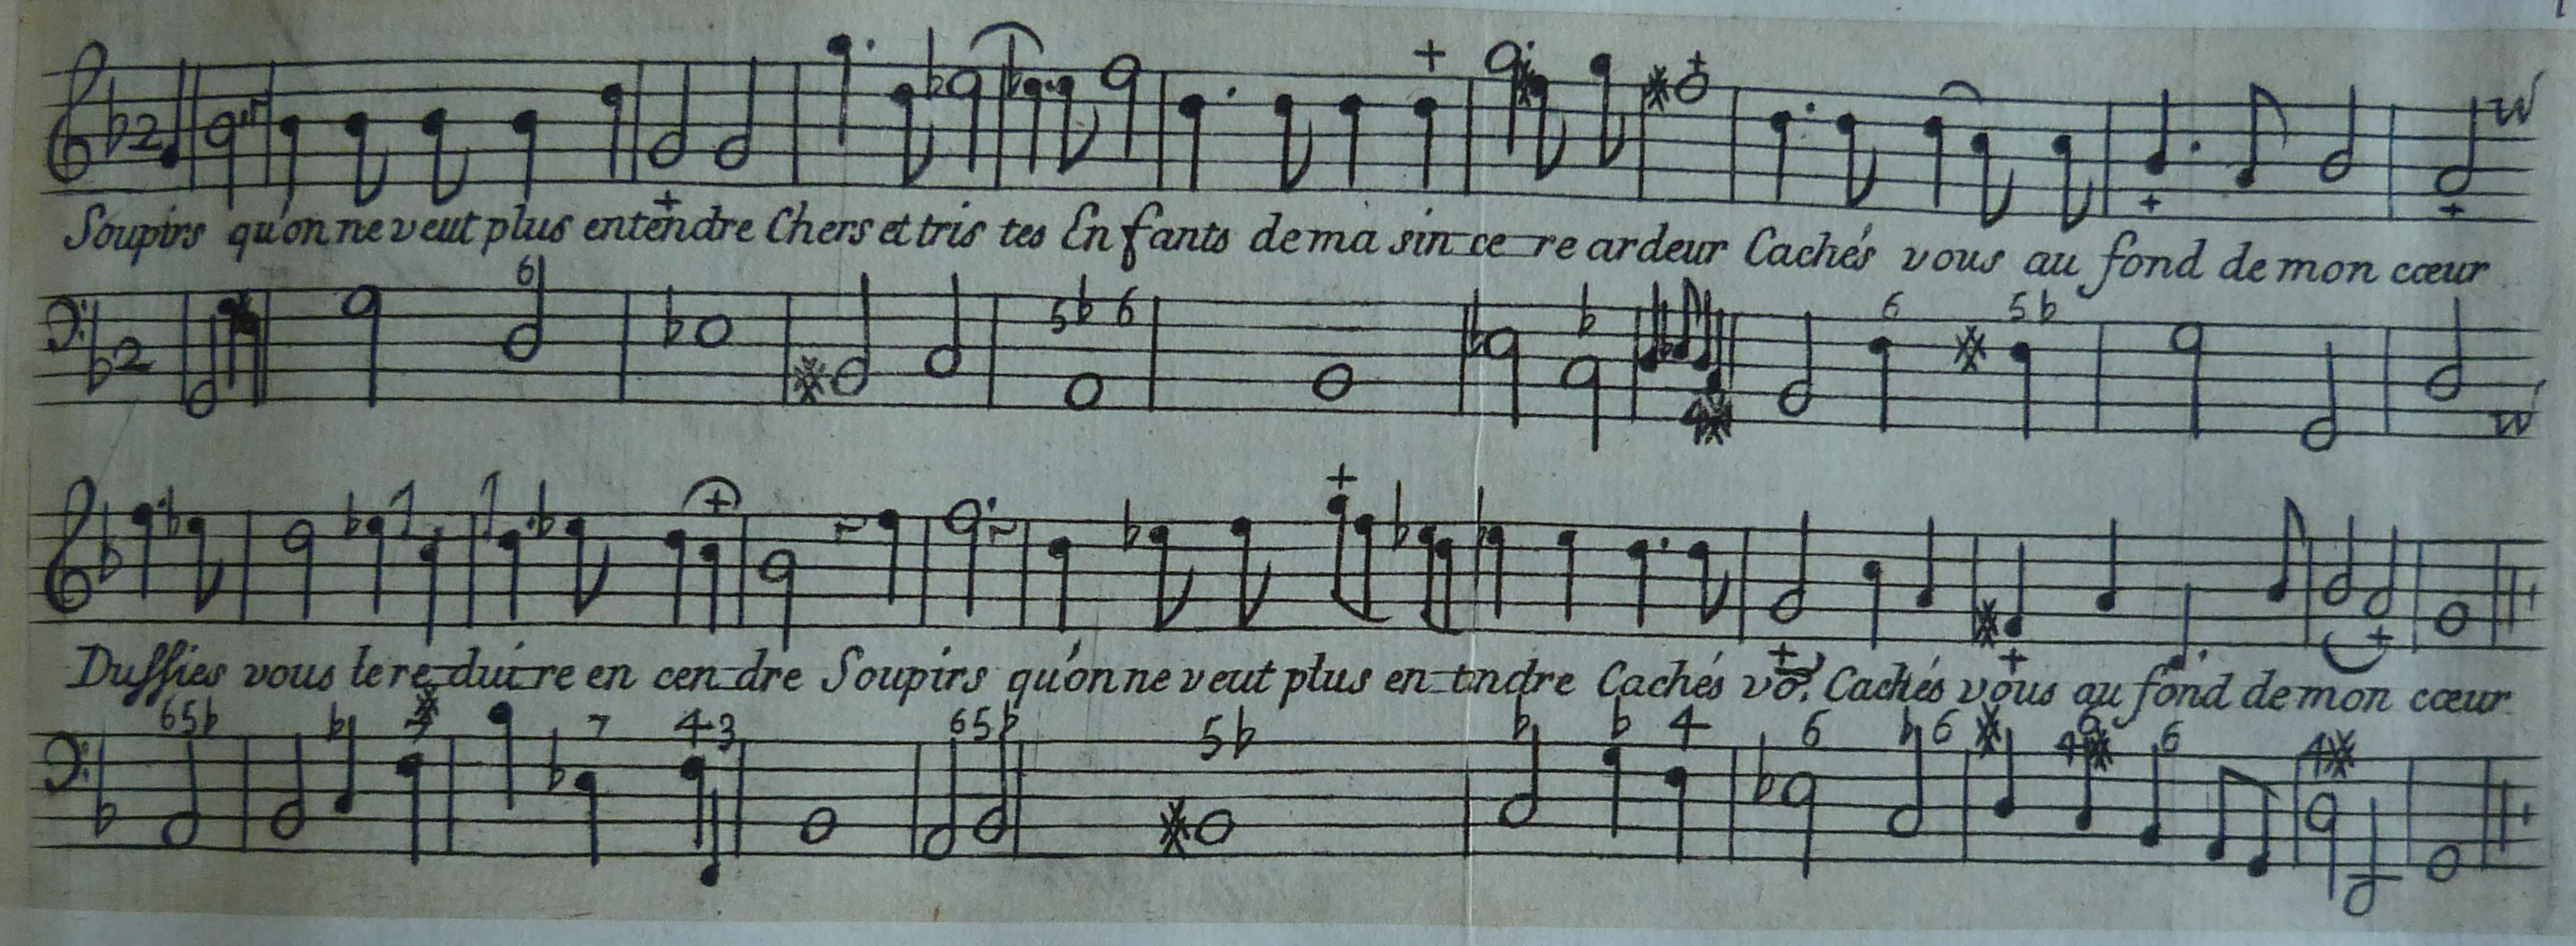 Soupirs qu'on ne veut plus entendre Chers et tris tes Enfants de ma sin_ce_re ardeur Cachés vous au fond de mon cœur
6 5b 6 b 4 6 5b
Duffies vous le re_dui_re en cen_dre Soupirs qu'on ne veut plus en_tndre Cachés vo9. Cachés vous au fond de mon cœur
6 5b b 7 4 3 6 5b 5b b b 4 6 b 6 4 6 6 4